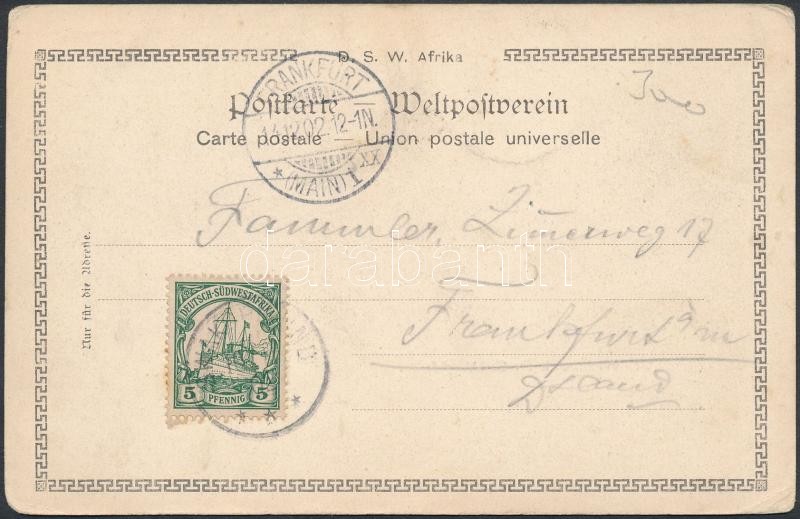 D. S. W. Afrika
FRANKFURT
14.12.02.12-1N.
* (MAIN) 1 XX
Postkarte — Weltpostverein
Carte postale — Union postale universelle
Nur für die Adresse.
Fammler, Zimerweg 17
darabanth
Frankfurt a m
DEUTSCH-SÜDWESTAFRIKA
5 PFENNIG 5